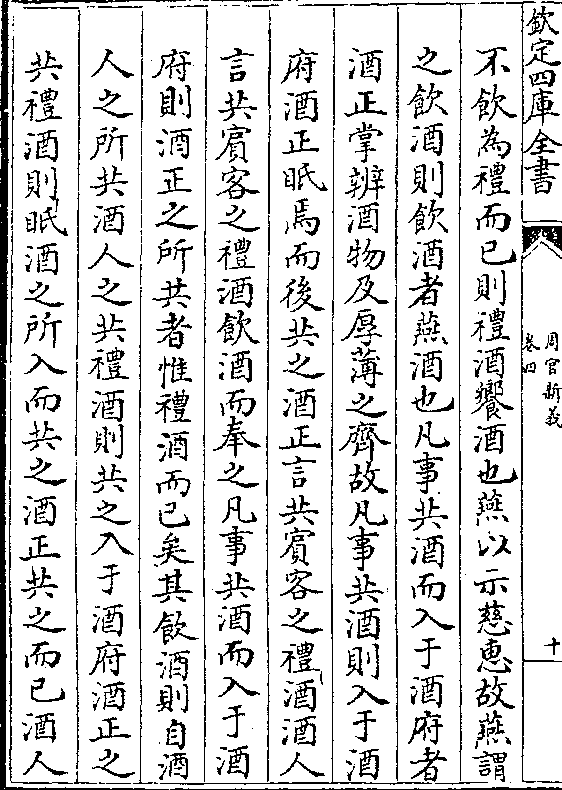 欽定四庫全書
周官新義
卷四
十
不飲為禮而已則禮酒饗酒也燕以示慈惠故燕謂
之飲酒則飲酒者燕酒也凡事共酒而入于酒府者
酒正掌辨酒物及厚薄之齊故凡事共酒則入于酒
府酒正眡焉而後共之酒正言共賓客之禮酒酒人
言共賓客之禮酒飲酒而奉之凡事共酒而入于酒
府則酒正之所共者惟禮酒而已矣其飲酒則自酒
人之所共酒人之共禮酒則共之入于酒府酒正之
共禮酒則眡酒之所入而共之酒正共之而已酒人